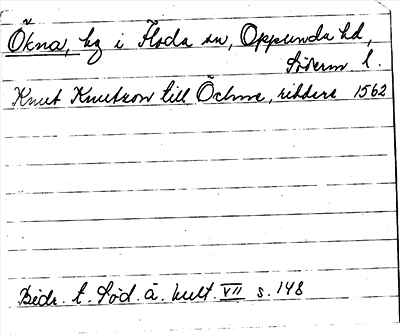 Ökna, hg i Floda sn, Oppunda hd,
Söderm. l.
Knut Knutson till Öchne, riddare 1562
Bidr. t. Söd. ä. kult. VII s. 148